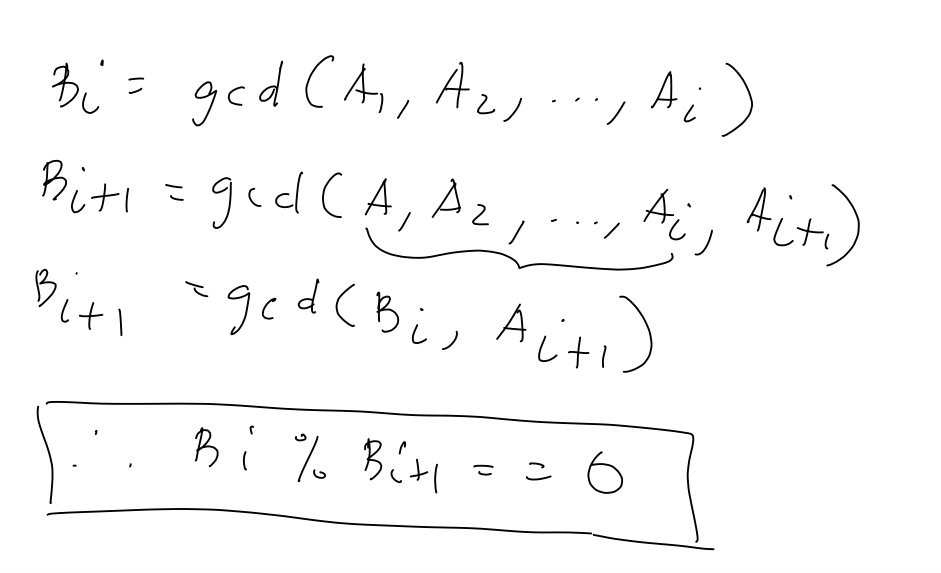 Bi = gcd(A1, A2, ..., Ai)
Bi+1 = gcd(A, A2, ..., Ai, Ai+1)
Bi+1 = gcd(Bi, Ai+1)
∴ Bi % Bi+1 == 0